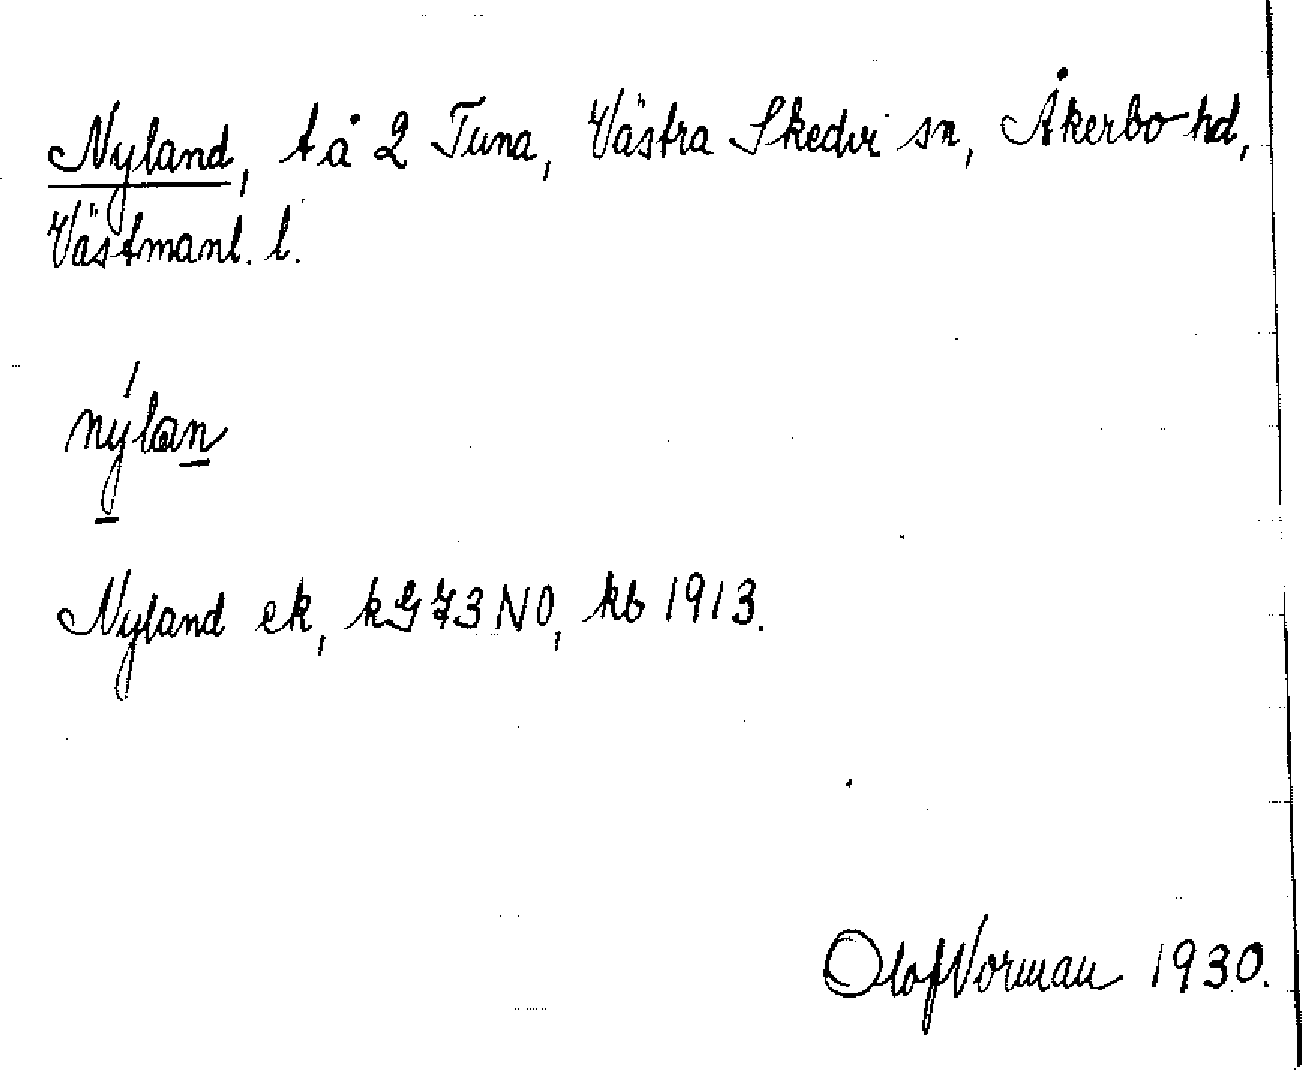 Nyland, t å 2 Tuna, Västra Skedvi sn, Åkerbo hd,
Västmanl. l.
nýlan
Nyland ek, kG73NO, kb 1913.
Olof Vorman 1930.